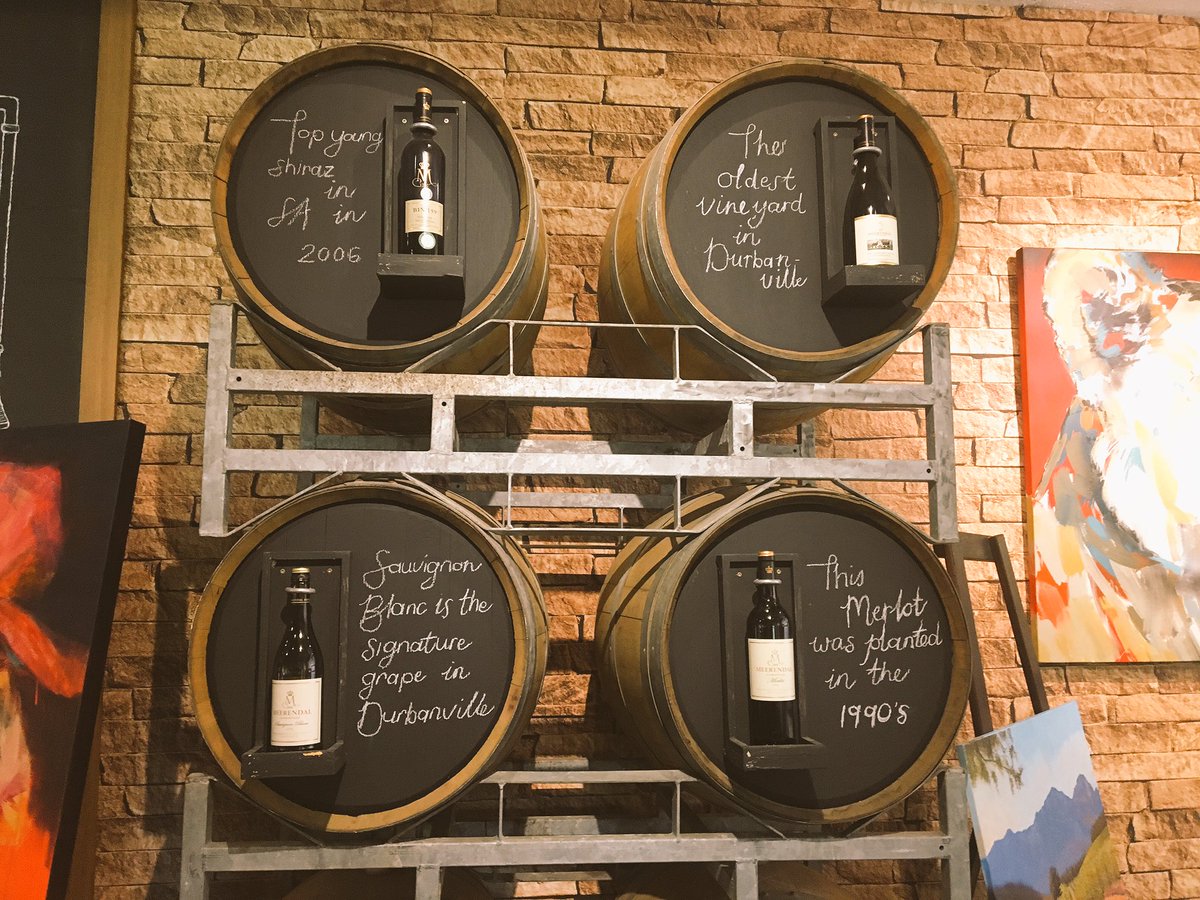 Top young
shiraz
in
SA in
2006
The
oldest
vineyard
in
Durban-
ville
Sauvignon
Blanc is the
signature
grape in
Durbanville
MEERENDAL
Sauvignon Blanc
This
Merlot
was planted
in the
1990's
MEERENDAL
Merlot